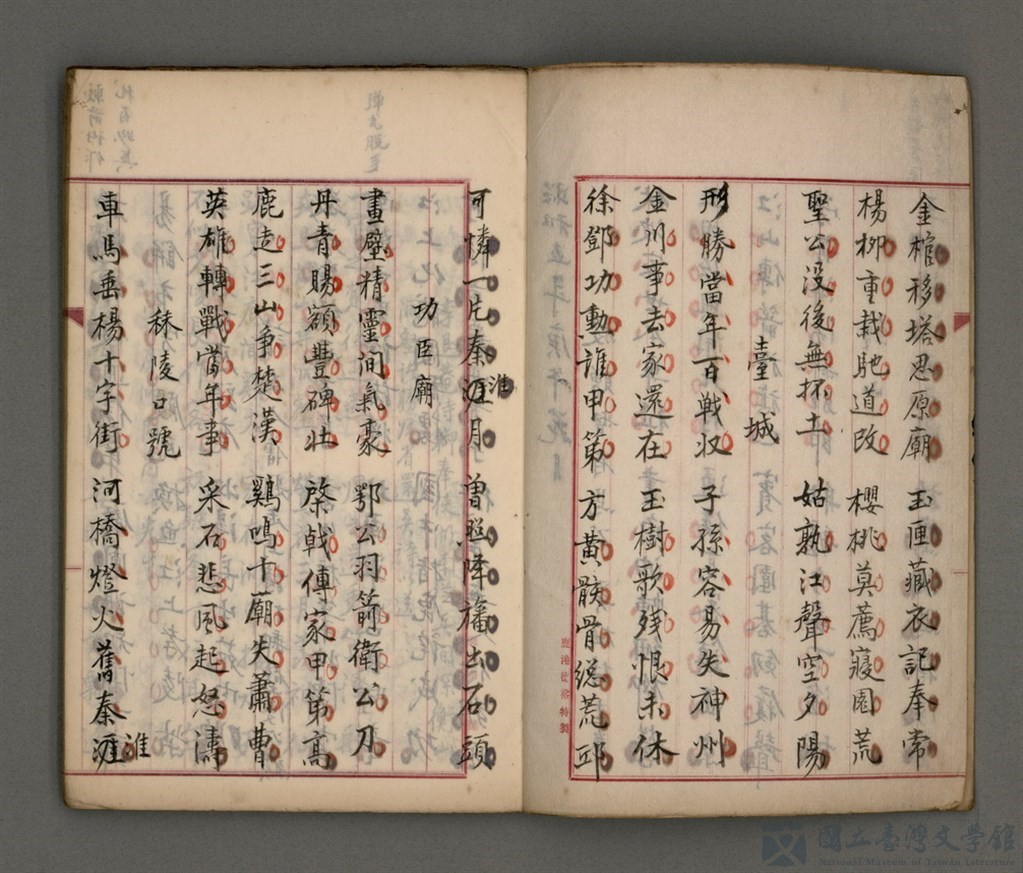 金棺移塔思原廟 玉匣藏衣記奉常
楊柳重栽馳道改 櫻桃莫薦寢園荒
聖公沒後無抔土 姑孰江聲空夕陽
臺城
形勝當年百戰収 子孫容易失神州
金川事去家還在 玉樹歌殘恨未休
徐鄧功勳誰甲第 方黄骸骨總荒邱
鹿港
特製
可憐一片秦淮月 曽照降旛出石頭
功臣廟
畫壁精靈间氣豪 鄂公羽箭衛公刀
丹青賜額豐碑壮 棨戟傳家甲第高
鹿走三山争楚漢 鷄鳴十廟失蕭曹
英雄轉戰當年事 采石悲風起怒濤
秣陵口號
車馬垂楊十字街 河橋燈火舊秦淮
國立臺灣文學館
National Museum of Taiwan Literature